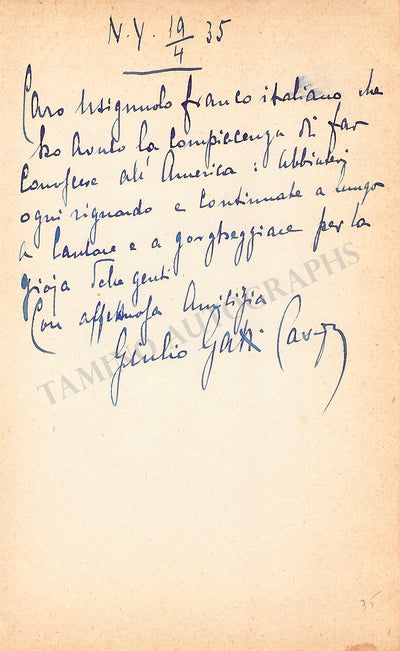 N.Y. 19/4 35
Caro Usignuolo franco italiano che
ho avuto la compiacenza di far
conoscere all'America: abbiatevi
ogni riguardo e continuate a lungo
a cantare e a gorgheggiare per la
gioja delle genti.
Con affettuosa amicizia
Giulio Gatti Casazza
TAMINO AUTOGRAPHS
35